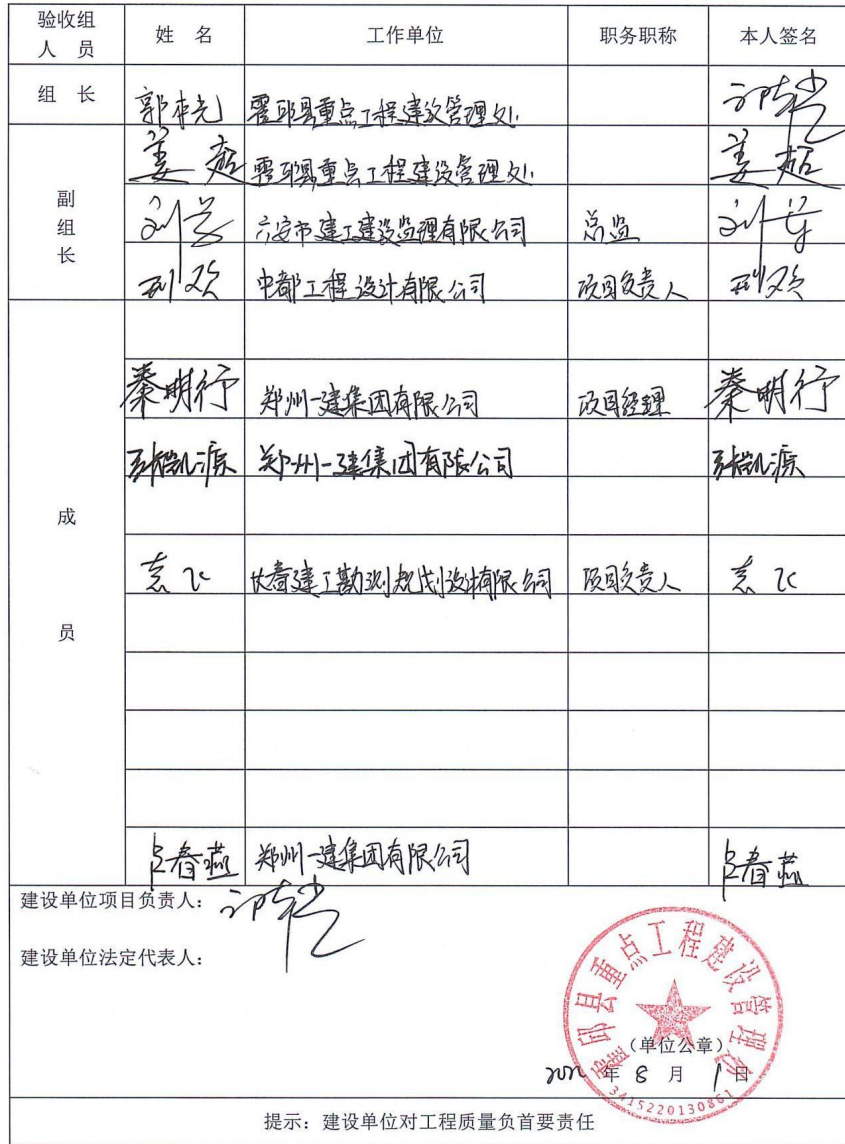 验收组人员 姓 名 工作单位 职务职称 本人签名
组 长 郭本先 霍邱县重点工程建设管理处
姜超 霍邱县重点工程建设管理处 姜超
副组长
六安市建工建设监理有限公司 总监
邢欢 中都工程设计有限公司 项目负责人 邢欢
秦明行 郑州一建集团有限公司 项目经理 秦明行
郑州一建集团有限公司
成员
袁飞 长春建工勘测规划设计有限公司 项目负责人 袁飞
春燕 郑州一建集团有限公司 春燕
建设单位项目负责人:
建设单位法定代表人:
霍邱县重点工程建设管理处
(单位公章)
年 8 月 1 日
3415220130861
提示:建设单位对工程质量负首要责任